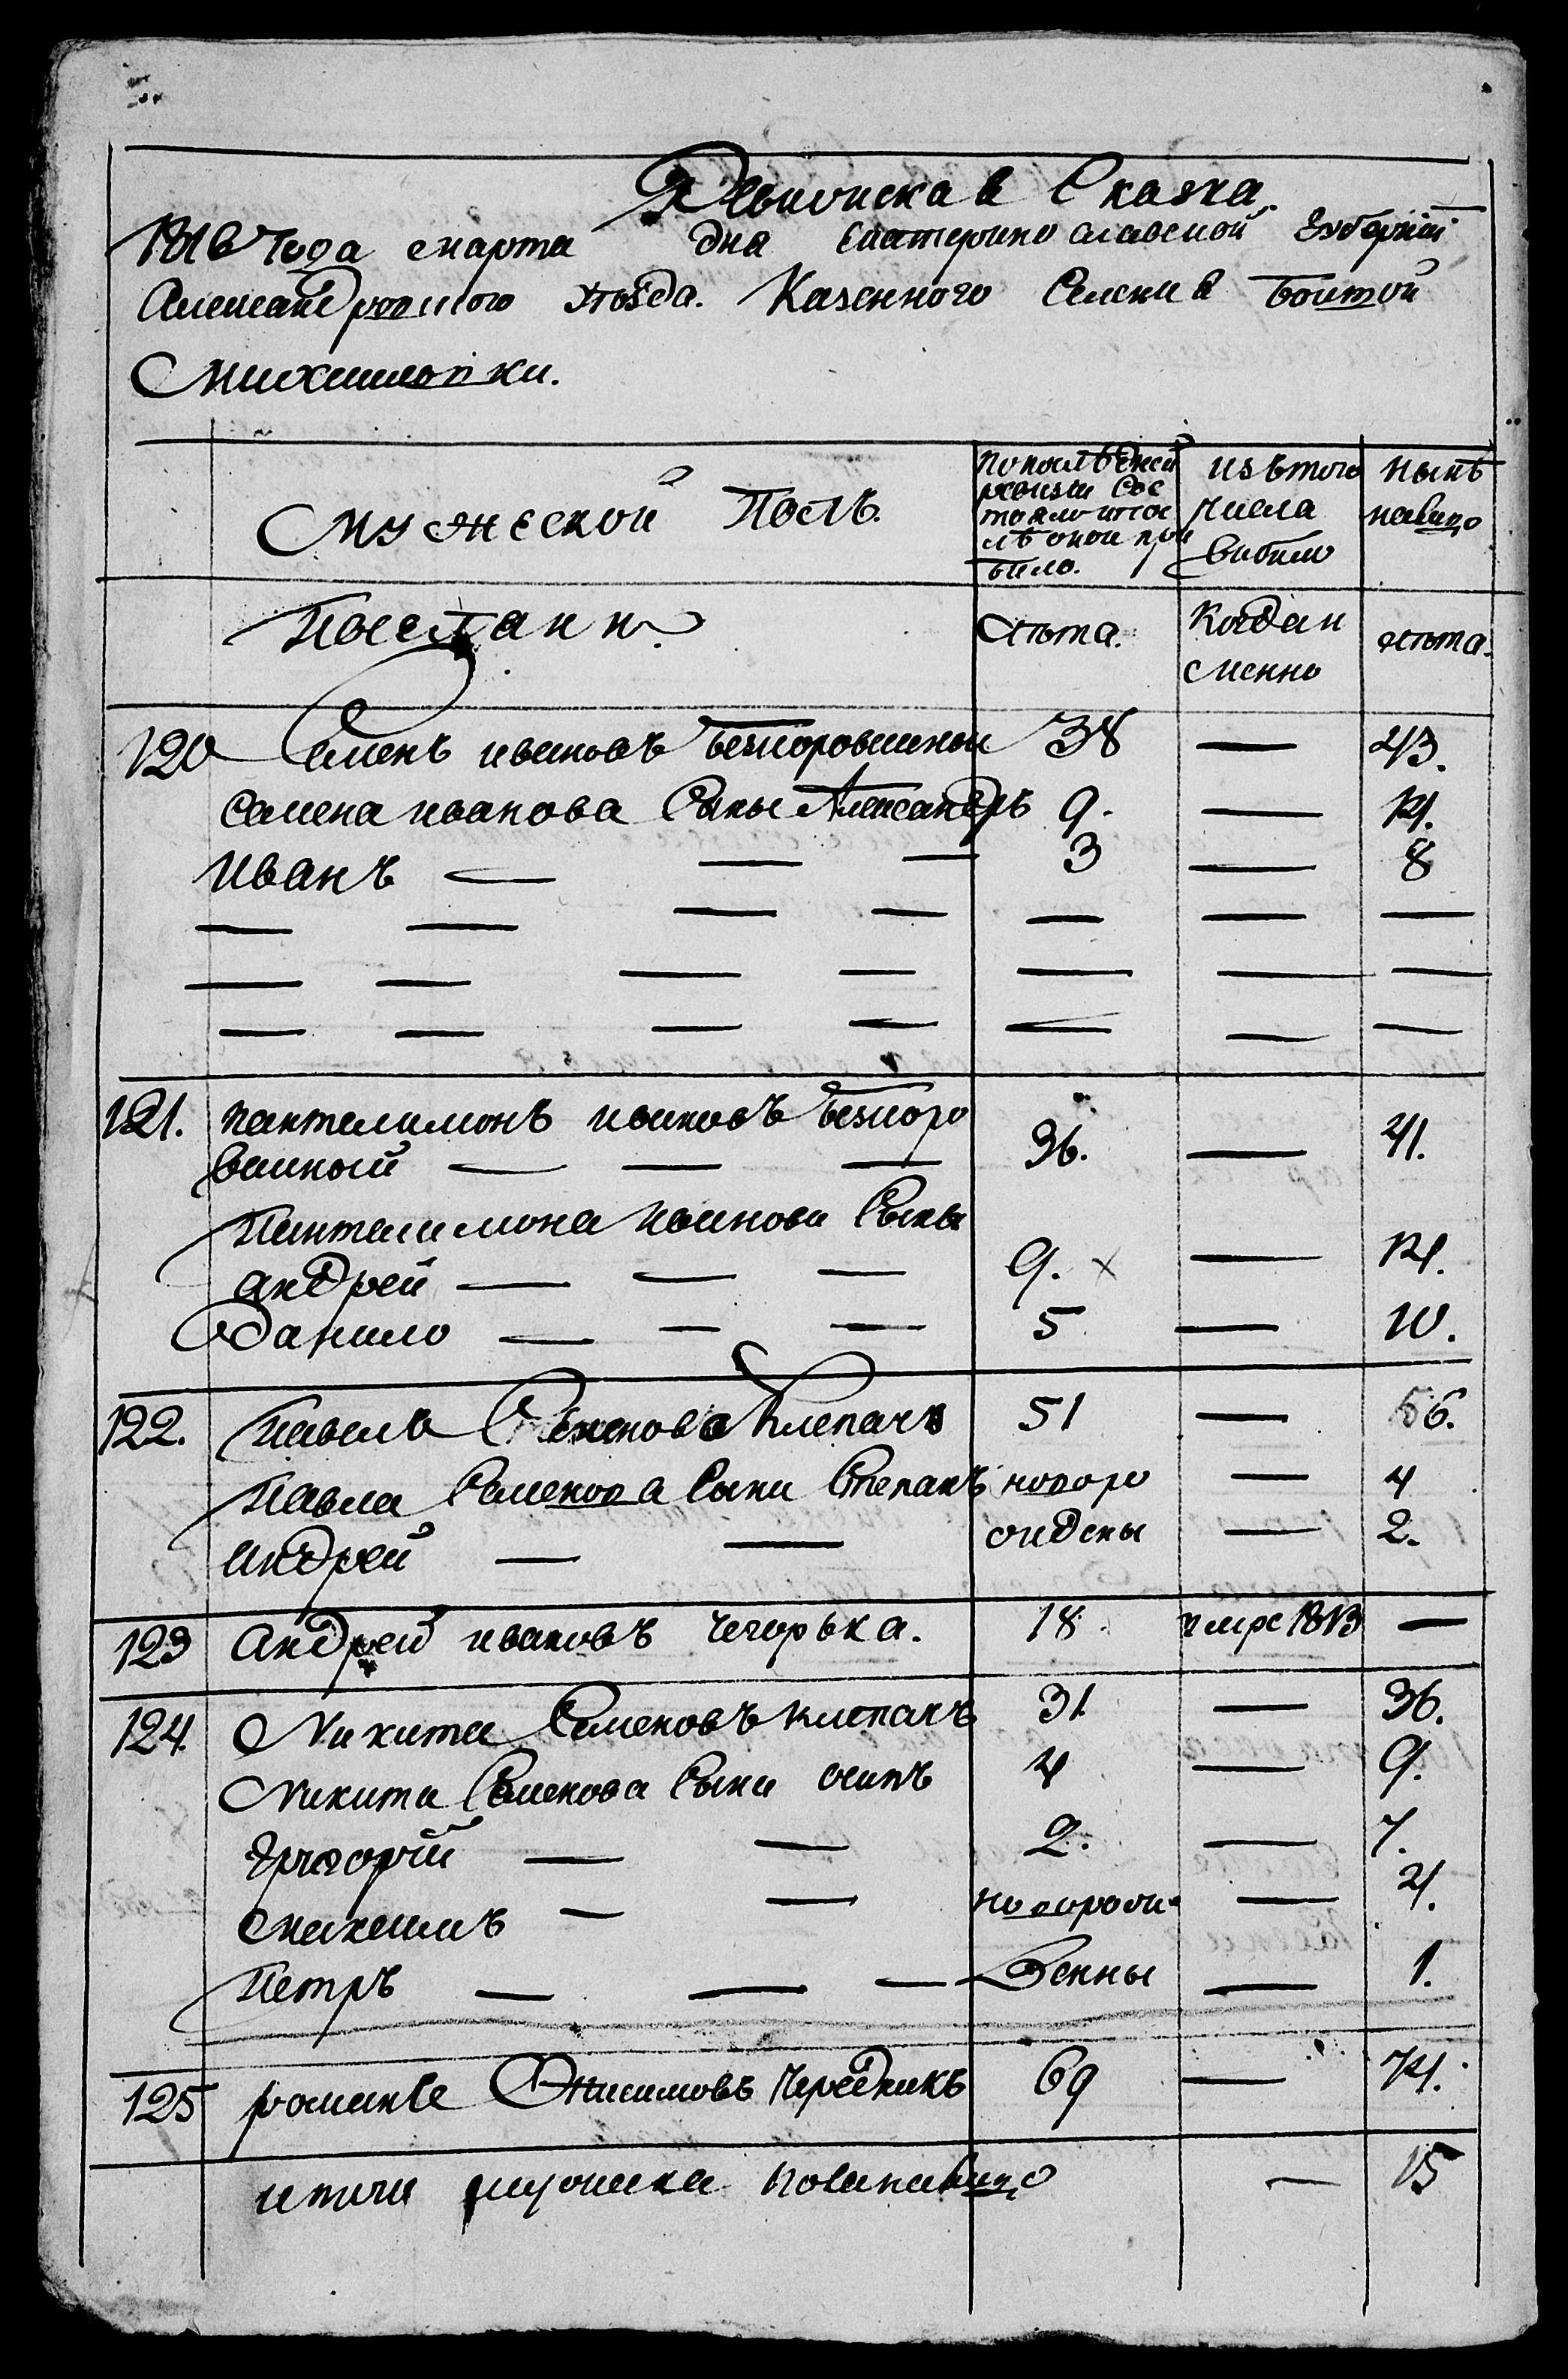 Ревизская Сказка.
1816 Года марта дня Екатеринославской Губернии
Александровского уезда. Казенного Селения
Михайловки.
мужеской Полъ.
по последней ревизии состояло и после оной при было.
изъ того числа выбыло
ныне на лицо
Поселяни
лета.
когда и менно
лета.
120 Семенъ ивановъ 38 — 43.
Семена иванова Сыны Александръ 9. — 14.
Иванъ — — — 3 — 8
— — — — — — —
— — — — — — —
— — — — — — —
121. пантелимонъ ивановъ
— — — 36. — 41.
Пантелимона иванова Сыны
андрей — — — 9. × — 14.
данило — — — 5 — 10.
122. Павелъ Семеновъ Клепачъ 51 — 56.
Павла Семенова Сыни Степанъ новоро — 4
андрей — — жидены — 2.
123 андрей ивановъ чегорька. 18. умре 1813 —
124. Никита Семеновъ клепачъ 31 — 36.
Никита Семенова Сыни осипъ 4 — 9.
Григорий — — 2. — 7.
михаилъ — — новорож — 4.
Петръ — — — денны — 1.
125 романъ Онисимовъ Чередникъ 69 — 74.
итого мужеска пола на лицо — 15